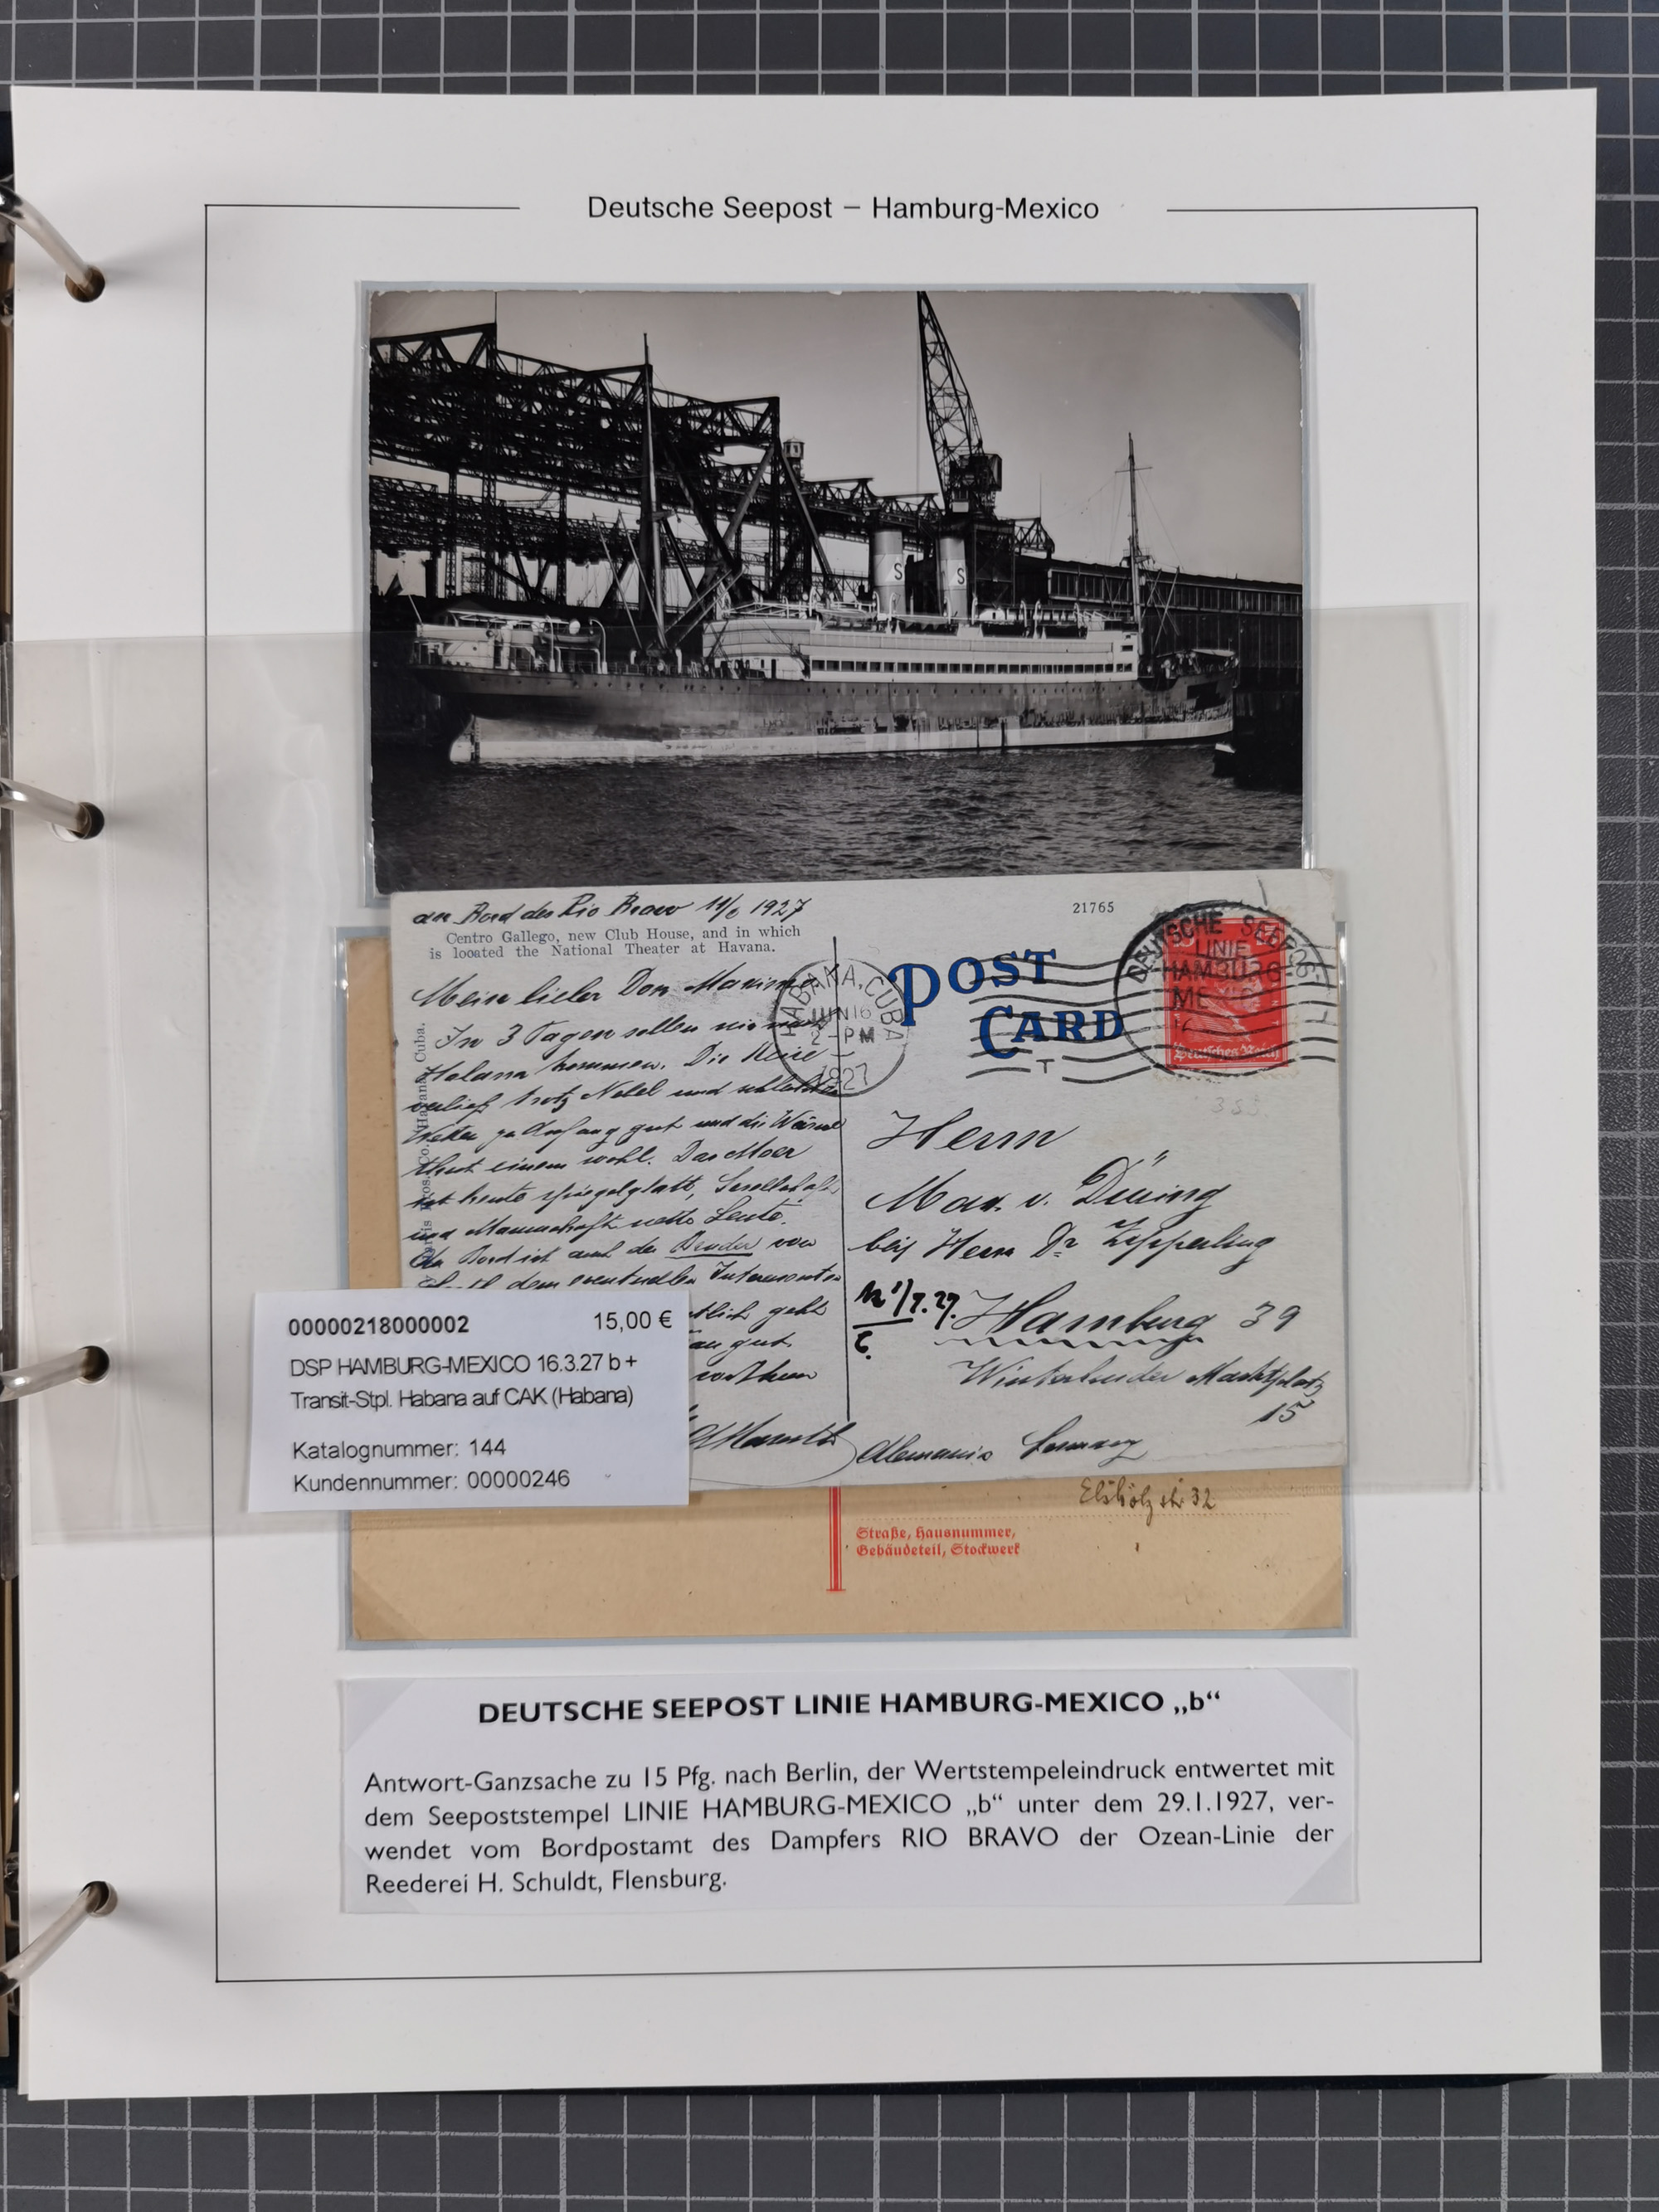 Deutsche Seepost – Hamburg-Mexico
S S
an Bord des Rio Bravo 11/6 1927
Centro Gallego, new Club House, and in which
is located the National Theater at Havana.
21765
POST
CARD
T
DEUTSCHE SEEPOST
LINIE
HAMBURG
MEXICO
Deutsches Reich
HABANA, CUBA
JUN 16
2 - PM
1927
Havana, Cuba.
Mein lieber Don Maximo
In 3 Tagen sollen wir nach
Habana kommen. Die Reise
verlief trotz Nebel und schlechten
Wetter zu Anfang gut und die Wärme
thut einem wohl. Das Meer
ist heute spiegelglatt, Gesellschaft
und Mannschaft nette Leute.
An Bord ist auch der Bruder von
dem eventuellen Interessenten
geht
gut
Herrn
Max v. Düring
bei Herrn Dr Zipperling
1/7.27.
Hamburg 39
Winterhuder Marktplatz
15
Alemania Germany
00000218000002 15,00 €
DSP HAMBURG-MEXICO 16.3.27 b +
Transit-Stpl. Habana auf CAK (Habana)
Katalognummer: 144
Kundennummer: 00000246
Elßholzstr. 32
Straße, Hausnummer,
Gebäudeteil, Stockwerk
DEUTSCHE SEEPOST LINIE HAMBURG-MEXICO „b“
Antwort-Ganzsache zu 15 Pfg. nach Berlin, der Wertstempeleindruck entwertet mit
dem Seepoststempel LINIE HAMBURG-MEXICO „b“ unter dem 29.1.1927, ver-
wendet vom Bordpostamt des Dampfers RIO BRAVO der Ozean-Linie der
Reederei H. Schuldt, Flensburg.